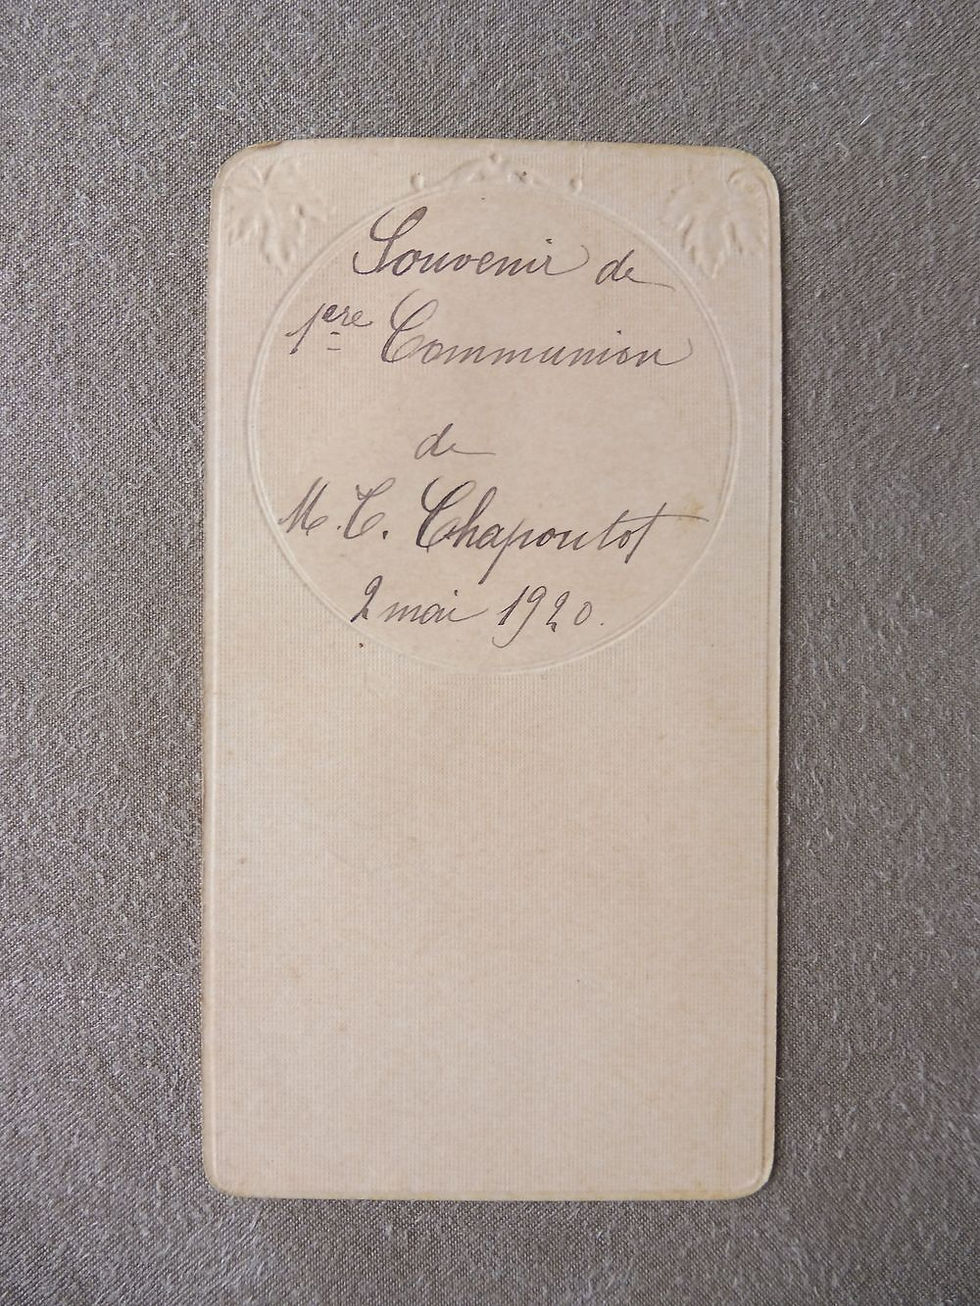 Souvenir de
1ere Communion
de
M. C. Chapoutot
2 mai 1920.